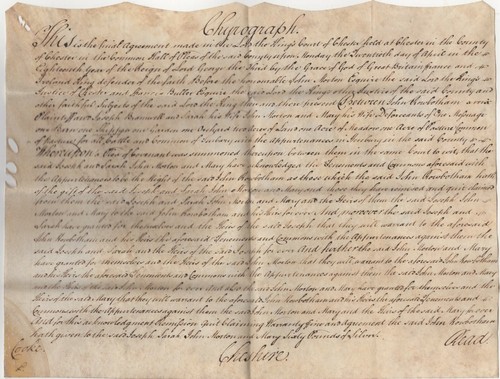 Chyrograph.
This is the final agreement made in the Lord the King's Court of Chester held at Chester in the County
of Chester in the Common Hall of Pleas of the said County to wit on Monday the Twentieth day of April in the
Eighteenth Year of the Reign of Lord George the Third by the Grace of God of Great Britain France and
Ireland King defender of the faith Before the honourable John Morton Esquire the said Lord the King's
Justice of Chester and Francis Buller Esquire the said Lord the King's other Justice of the said County and
other faithful Subjects of the said Lord the King then and there present Between John Rowbotham
Plaintiff and Joseph and Sarah his Wife John Morton and Mary his Wife Defendants of One Messuage
one Garden one Orchard Acres of Land one Acre of Meadow one Acre of Pasture Common
of Pasture for all Cattle and Common of Turbary with the Appurtenances in in the said County
Whereupon a Plea of Covenant was summoned between them in the same Court to wit that the
said Joseph and Sarah John Morton and Mary have acknowledged the Tenements and Commons aforesaid with
the Appurtenances to be the Right of the said John Rowbotham as those which the said John Rowbotham hath
of the gift of the said Joseph and Sarah John Morton and Mary and those they have remised and quit claimed
from them the said Joseph and Sarah John Morton and Mary and the Heirs of them the said Joseph John
Morton and Mary to the said John Rowbotham and his Heirs for ever And moreover the said Joseph and
Sarah have granted for themselves and the Heirs of the said Joseph that they will warrant to the aforesaid
John Rowbotham and his Heirs the aforesaid Tenements and Commons with the Appurtenances against them the
said Joseph and Sarah and the Heirs of the said Joseph for ever And further the said John Morton and Mary
have granted for themselves and the Heirs of the said John Morton that they will warrant to the aforesaid John Rowbotham
and his Heirs the aforesaid Tenements and Commons with the Appurtenances against them the said John Morton and Mary
and the Heirs of the said John Morton for ever And also the said John Morton and Mary have granted for themselves and the
Heirs of the said Mary that they will warrant to the aforesaid John Rowbotham and his Heirs the aforesaid Tenements and
Commons with the Appurtenances against them the said John Morton and Mary and the Heirs of the said Mary for ever
And for this acknowledgment Remission Quit Claiming Warranty fine and Agreement the said John Rowbotham
hath given to the said Joseph Sarah John Morton and Mary Sixty Pounds of Silver.
Read
Cooke
Cheshire.